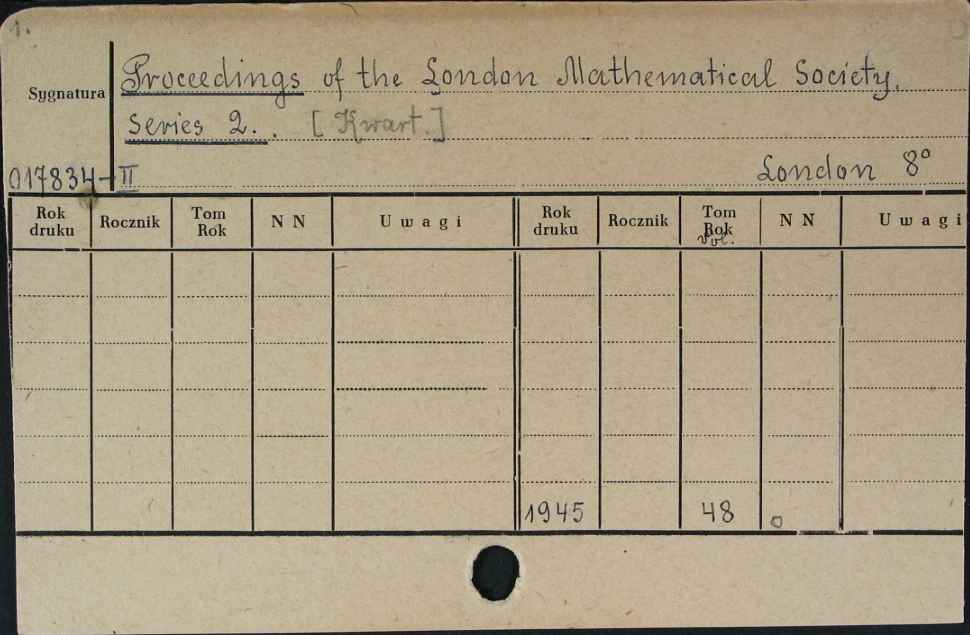 1.
Sygnatura
Proceedings of the London Mathematical Society.
Series 2. . [Kwart.]
017834-II
London 8°
Rok druku Rocznik Tom Rok N N Uwagi Rok druku Rocznik Tom Rok vol. N N Uwagi
1945 48 o